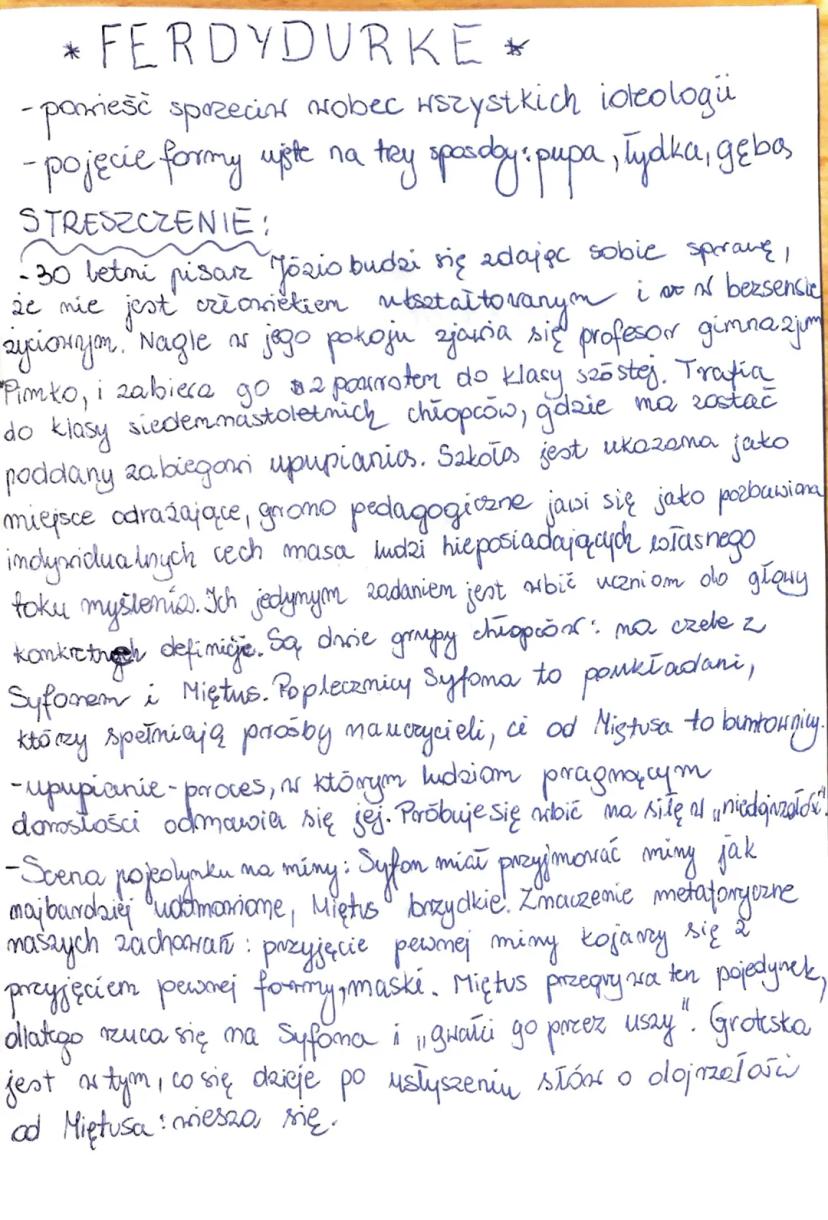 * FERDYDURKE *
- powieść sprzeciw wobec wszystkich ideologii
- pojęcie formy ujęte na trzy sposoby: pupa, łydka, gęba
STRESZCZENIE:
- 30 letni pisarz Józio budzi się zdając sobie sprawę,
że nie jest człowiekiem ukształtowanym i w bezsensie
życiowym. Nagle w jego pokoju zjawia się profesor gimnazjum
Pimko, i zabiera go z powrotem do klasy szóstej. Trafia
do klasy siedemnastoletnich chłopców, gdzie ma zostać
poddany zabiegowi upupiania. Szkoła jest ukazana jako
miejsce odrażające, grono pedagogiczne jawi się jako pozbawiona
indywidualnych cech masa ludzi nieposiadających własnego
toku myślenia. Ich jedynym zadaniem jest wbić uczniom do głowy
konkretne definicje. Są dwie grupy chłopców: na czele z
Syfonem i Miętus. Poplecznicy Syfona to poukładani,
którzy spełniają prośby nauczycieli, ci od Miętusa to buntownicy.
- upupianie - proces, w którym ludziom pragnącym
dorosłości odmawia się jej. Próbuje się wbić na siłę w „niedojrzałość".
- Scena pojedynku na miny: Syfon miał przyjmować miny jak
najbardziej udomowione, Miętus brzydkie. Znaczenie metaforyczne
naszych zachowań: przyjęcie pewnej miny kojarzy się z
przyjęciem pewnej formy, maski. Miętus przegrywa ten pojedynek,
dlatego rzuca się na Syfona i „gwałci go przez uszy". Groteska
jest w tym, co się dzieje po usłyszeniu słów o dojrzałości
od Miętusa: wiesza się.